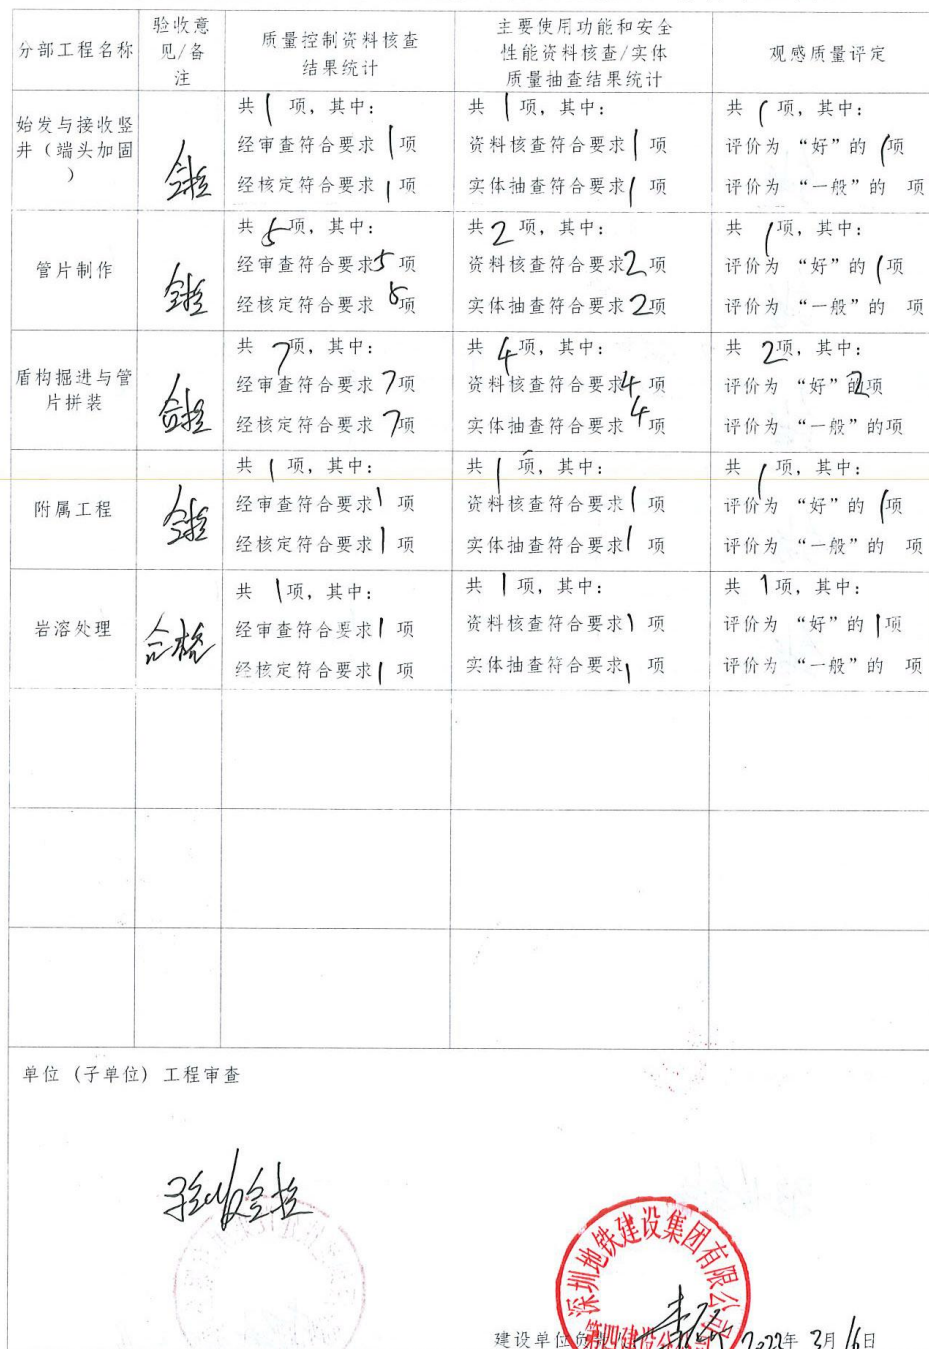 分部工程名称
验收意
见/备
注
质量控制资料核查
结果统计
主要使用功能和安全
性能资料核查/实体
质量抽查结果统计
观感质量评定
始发与接收竖
井（端头加固
）
合格
共 1 项，其中：
经审查符合要求 1 项
经核定符合要求 1 项
共 1 项，其中：
资料核查符合要求 1 项
实体抽查符合要求 1 项
共 1 项，其中：
评价为 “好”的 1 项
评价为 “一般”的 项
管片制作
合格
共 5 项，其中：
经审查符合要求 5 项
经核定符合要求 5 项
共 2 项，其中：
资料核查符合要求 2 项
实体抽查符合要求 2 项
共 1 项，其中：
评价为 “好”的 1 项
评价为 “一般”的 项
盾构掘进与管
片拼装
合格
共 7 项，其中：
经审查符合要求 7 项
经核定符合要求 7 项
共 4 项，其中：
资料核查符合要求 4 项
实体抽查符合要求 4 项
共 2 项，其中：
评价为 “好”的 2 项
评价为 “一般”的项
附属工程
合格
共 1 项，其中：
经审查符合要求 1 项
经核定符合要求 1 项
共 1 项，其中：
资料核查符合要求 1 项
实体抽查符合要求 1 项
共 1 项，其中：
评价为 “好”的 1 项
评价为 “一般”的 项
岩溶处理
合格
共 1 项，其中：
经审查符合要求 1 项
经核定符合要求 1 项
共 1 项，其中：
资料核查符合要求 1 项
实体抽查符合要求 1 项
共 1 项，其中：
评价为 “好”的 1 项
评价为 “一般”的 项
单位（子单位）工程审查
验收合格
深圳地铁建设集团有限公司
第四建设分公司
建设单位负责人 2022年 3月 16日